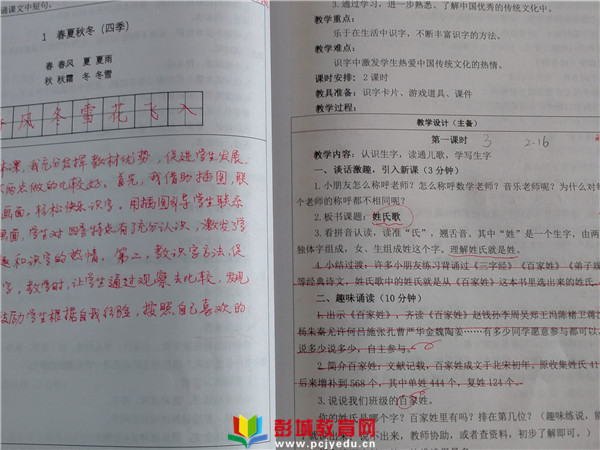 诵课文中短句。
1 春夏秋冬（四季）
春 春风 夏 夏雨
秋 秋霜 冬 冬雪
风 冬 雪 花 飞 入
课，我充分发挥教材优势，促进学生发展，
做的比较好，首先，我借助插图，联
画面，轻松快乐识字，用插图引导学生联系
画面，学生对四季特点有了充分认识，激发了学
和识字的热情。第二，教识字方法，促
字，教学时，让学生通过观察去比较，发现
鼓励学生根据自我经验，按照自己喜欢的
3.通过学习，进一步熟悉、了解中国优秀的传统文化。
教学重点：
乐于在生活中识字，不断丰富识字的方法。
教学难点：
识字中激发学生热爱中国传统文化的热情。
课时安排：2 课时
教具准备：识字卡片、游戏道具、课件
教学过程：
教学设计（主备）
第一课时 3 2-16
教学内容：认识生字，读通儿歌，学写生字
一、谈话激趣，引入新课（3 分钟）
1.小朋友怎么称呼老师？怎么称呼数学老师？音乐老师呢？为什么对每
个老师的称呼都不相同呢？
2.板书课题：姓氏歌
3.看拼音认读，读准“氏”，翘舌音。其中“姓”是一个生字，由两
独体字组成，女、生组成姓这个字。理解姓氏就是姓。
4.小结过渡：许多小朋友练习背诵过《三字经》《百家姓》《弟子规
等经典诗文，姓氏歌中的姓氏就是从《百家姓》这本书里选出来的姓氏
二、趣味诵读（10 分钟）
1.出示《百家姓》，齐读《百家姓》赵钱孙李周吴郑王冯陈褚卫蒋沈
杨朱秦尤许何吕施张孔曹严华金魏陶姜……有多少同学愿意参与都可以
说多少说多少，自主参与。
2.简介百家姓：文献记载，百家姓成文于北宋初年，原收集姓氏 41
后来增补到 568 个，其中单姓 444 个，复姓 124 个。
3.说说我们班级的百家姓。
你的姓氏是哪个字？百家姓里有吗？排在第几位？（趣味练说，能
说不出来，教师协助，或者查资料，初步了解即可。）
彭城教育网
www.pcjyedu.cn